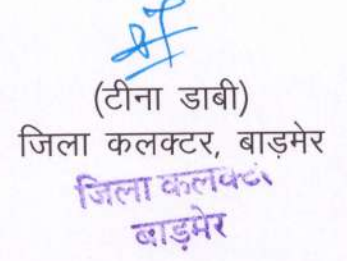 (टीना डाबी)
जिला कलक्टर, बाड़मेर
जिला कलक्ट
बाड़मेर